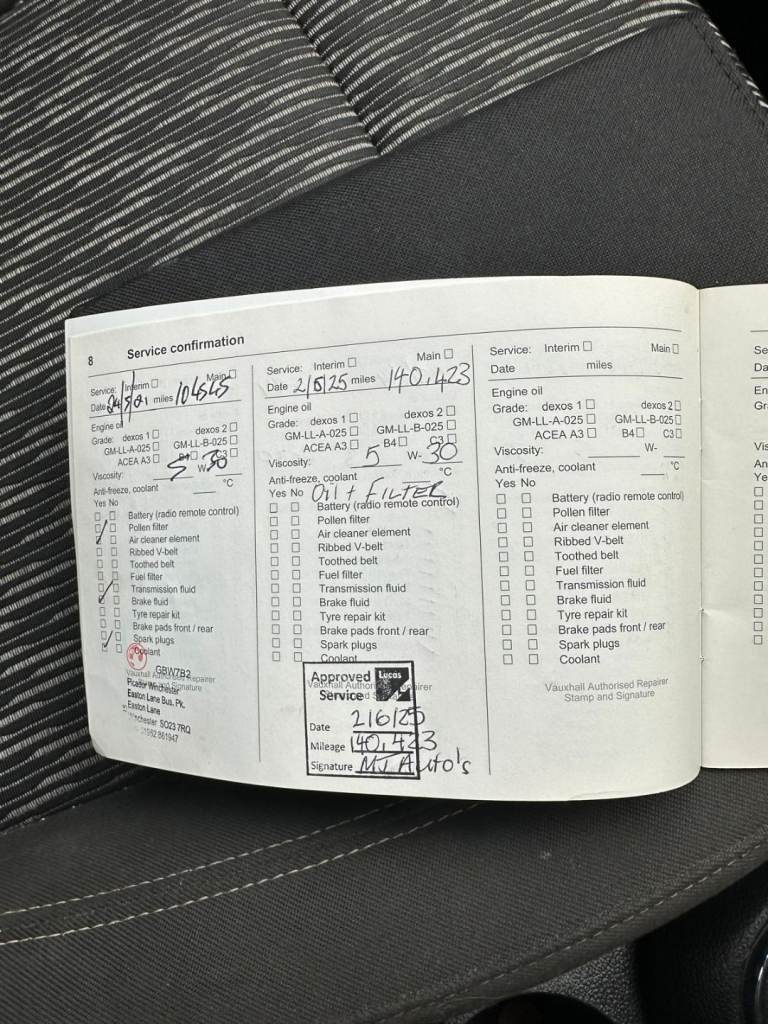 8 Service confirmation
Service: Interim Main
Date 24/5/21 miles 104545
Engine oil
Grade: dexos 1 dexos 2
GM-LL-A-025 GM-LL-B-025
ACEA A3 B4 C3
Viscosity: 5 W- 30
Anti-freeze, coolant °C
Yes No
Battery (radio remote control)
Pollen filter
Air cleaner element
Ribbed V-belt
Toothed belt
Fuel filter
Transmission fluid
Brake fluid
Tyre repair kit
Brake pads front / rear
Spark plugs
Coolant
Vauxhall Authorised Repairer
Stamp and Signature
GBW7B2
Winchester
Easton Lane Bus. Pk.
Easton Lane
Winchester SO23 7RQ
861947
Service: Interim Main
Date 2/6/25 miles 140,423
Engine oil
Grade: dexos 1 dexos 2
GM-LL-A-025 GM-LL-B-025
ACEA A3 B4 C3
Viscosity: 5 W- 30
Anti-freeze, coolant °C
Yes No Oil + FILTER
Battery (radio remote control)
Pollen filter
Air cleaner element
Ribbed V-belt
Toothed belt
Fuel filter
Transmission fluid
Brake fluid
Tyre repair kit
Brake pads front / rear
Spark plugs
Coolant
Vauxhall Authorised Repairer
Approved Lucas
Service
Date 2/6/25
Mileage 140,423
Signature MJ Auto's
Service: Interim Main
Date miles
Engine oil
Grade: dexos 1 dexos 2
GM-LL-A-025 GM-LL-B-025
ACEA A3 B4 C3
Viscosity: W-
Anti-freeze, coolant °C
Yes No
Battery (radio remote control)
Pollen filter
Air cleaner element
Ribbed V-belt
Toothed belt
Fuel filter
Transmission fluid
Brake fluid
Tyre repair kit
Brake pads front / rear
Spark plugs
Coolant
Vauxhall Authorised Repairer
Stamp and Signature
Se
Da
En
Gr
Vis
An
Ye